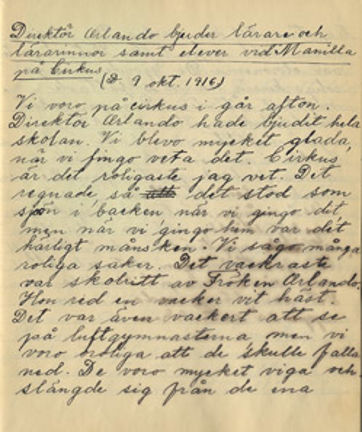 Direktör Arlando bjuder lärare och
lärarinnor samt elever vid Manilla
på Cirkus
(D. 9 okt. 1916)
Vi voro på cirkus i går afton.
Direktör Arlando hade bjudit hela
skolan. Vi blevo mycket glada,
när vi fingo veta det. Cirkus
är det roligaste jag vet. Det
regnade så att det stod som
spön i backen, när vi gingo dit
men när vi gingo hem var det
härligt månsken. Vi sågo många
roliga saker. Det vackraste
var skolritt av Fröken Arlando.
Hon red en vacker vit häst.
Det var även vackert att se
på luftgymnasterna men vi
voro oroliga att de skulle falla
ned. De voro mycket viga och
slängde sig från de ena